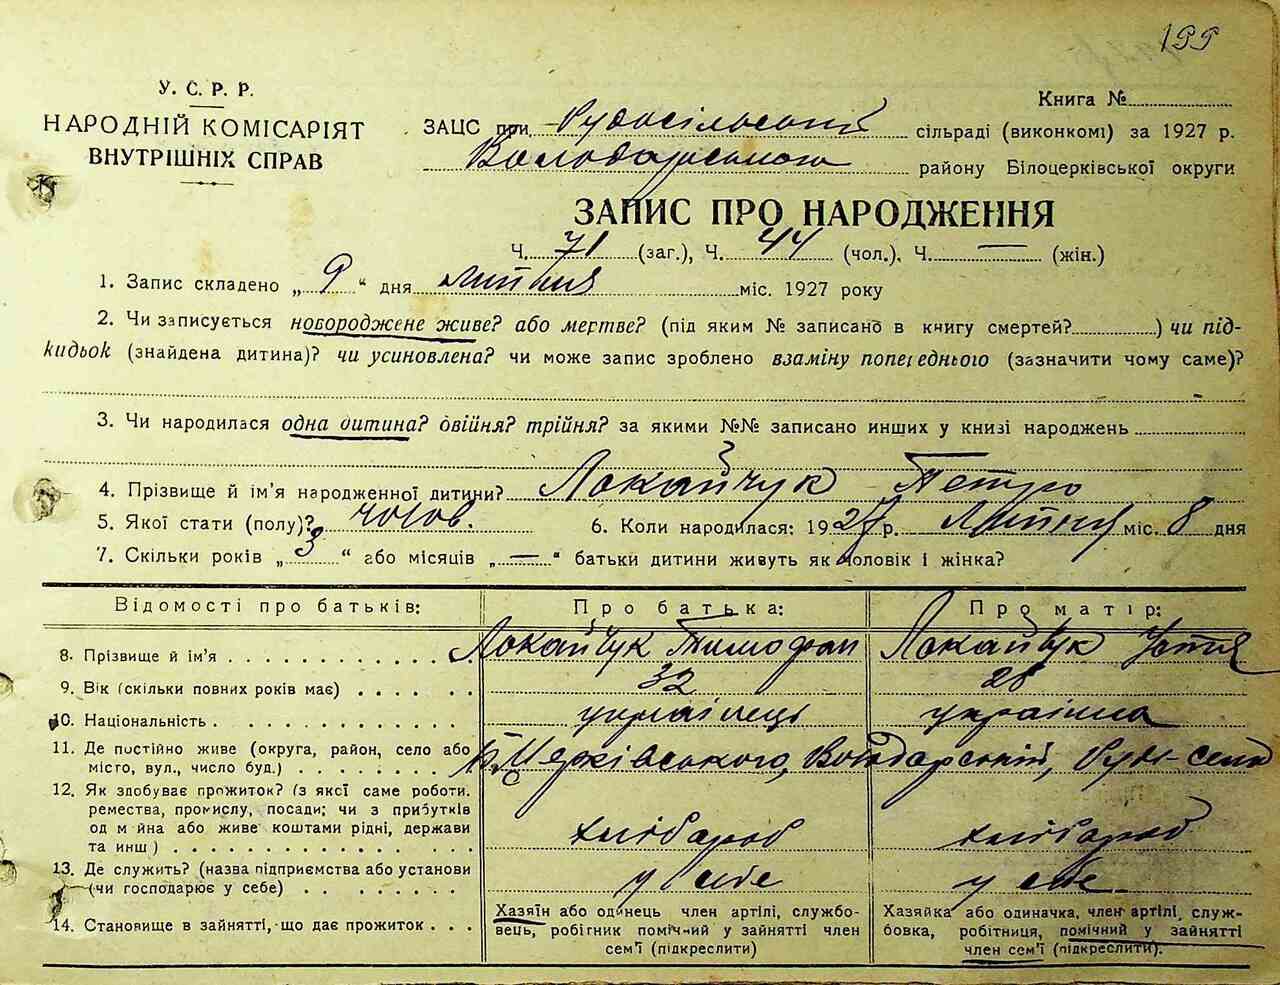 199
У. С. Р. Р.
НАРОДНІЙ КОМІСАРІЯТ
ВНУТРІШНІХ СПРАВ
Книга №
ЗАЦС при Рудосільській сільраді (виконкомі) за 1927 р.
Володарського району Білоцерківської округи
ЗАПИС ПРО НАРОДЖЕННЯ
Ч. 71 (заг.), Ч. 44 (чол.), Ч. — (жін.)
1. Запис складено „ 9 “ дня липня міс. 1927 року
2. Чи записується новороджене живе? або мертве? (під яким № записано в книгу смертей? ) чи під-
кидьок (знайдена дитина)? чи усиновлена? чи може запис зроблено взаміну попереднього (зазначити чому саме)?
3. Чи народилася одна дитина? двійня? трійня? за якими №№ записано инших у книзі народжень
4. Прізвище й ім'я народженної дитини? Локайчук Петро
5. Якої стати (полу)? чолов. 6. Коли народилася: 1927 р. Липня міс. 8 дня
7. Скільки років „ 3 “ або місяців „ — “ батьки дитини живуть як чоловік і жінка?
Відомості про батьків: Про батька: Про матір:
8. Прізвище й ім'я Локайчук Тимофан Локайчук Устя
9. Вік (скільки повних років має) 32 28
10. Національність українець українка
11. Де постійно живе (округа, район, село або
місто, вул., число буд.) Б. Церківського, Володарський, Руде-село
12. Як здобуває прожиток? (з якої саме роботи.
ремества, промислу, посади; чи з прибутків
од майна або живе коштами рідні, держави
та инш) хлібороб хлібороб
13. Де служить? (назва підприємства або установи
(чи господарює у себе) у себе у себе
14. Становище в зайнятті, що дає прожиток
Хазяїн або одинець член артілі, службо-
вець, робігник помічний у зайнятті член
сем'ї (підкреслити)
Хазяйка або одиначка, член артілі, служ-
бовка, робітниця, помічний у зайнятті
член сем'ї (підкреслити).